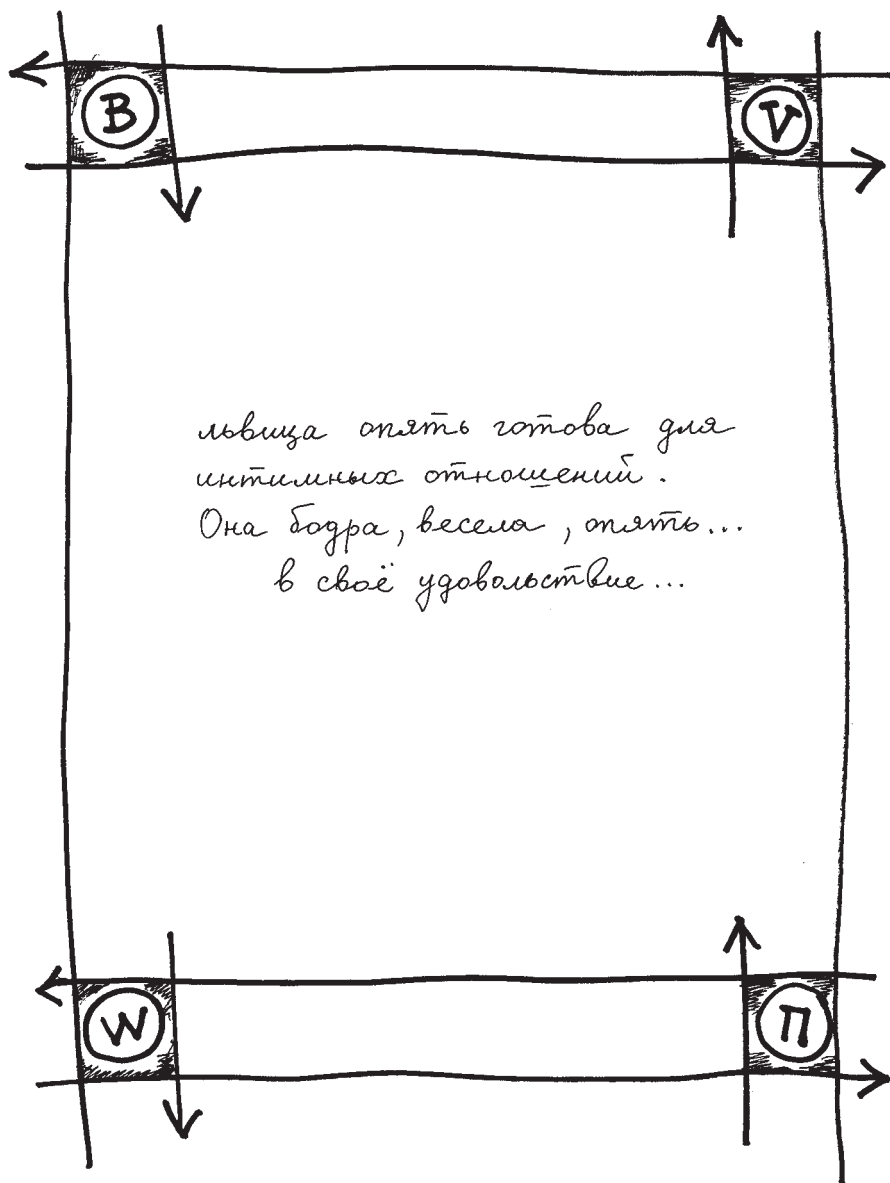 В
V
львица опять готова для
интимных отношений.
Она бодра, весела, опять...
в своё удовольствие...
W
П